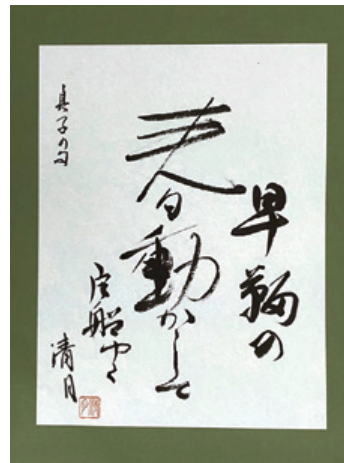 早鞆の
春日動かして
巨船ゆく
清月
真子の句